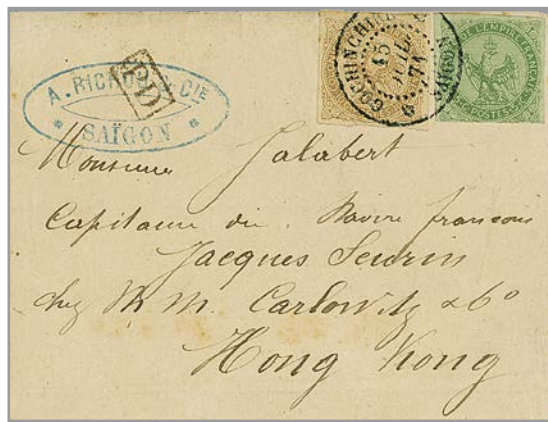 A. RICHOU & CIE
SAÏGON
PD
COCHINCHINE
15
JUIL.
71
SAIGON
DE L'EMPIRE FRANÇAIS
POSTES
Monsieur Jalabert
Capitaine du Navire francais
Jacques Seurin
chez M.M. Carlowitz & Co
Hong Kong